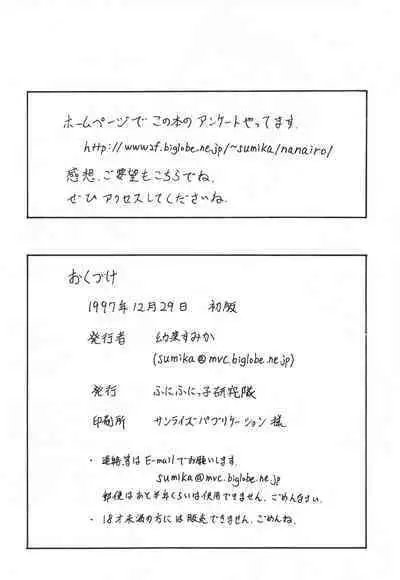 ホームページで この本の アンケートやってます.
http://www2f.biglobe.ne.jp/~sumika/nanairo/
感想、ご要望もこちらでね.
ぜひ アクセスして くださいね.
おくづけ
1997年12月29日 初版
発行者 幼菜すみか
(sumika@mvc.biglobe.ne.jp)
発行 ふにふにっ子研究隊
印刷所 サンライズパブリケーション 様
・ 連絡等は E-mail でお願いします.
sumika@mvc.biglobe.ne.jp
郵便は あと 半年くらいは使用できません. ごめんなさい.
・ 18才未満の方には 販売できません. ごめんね.